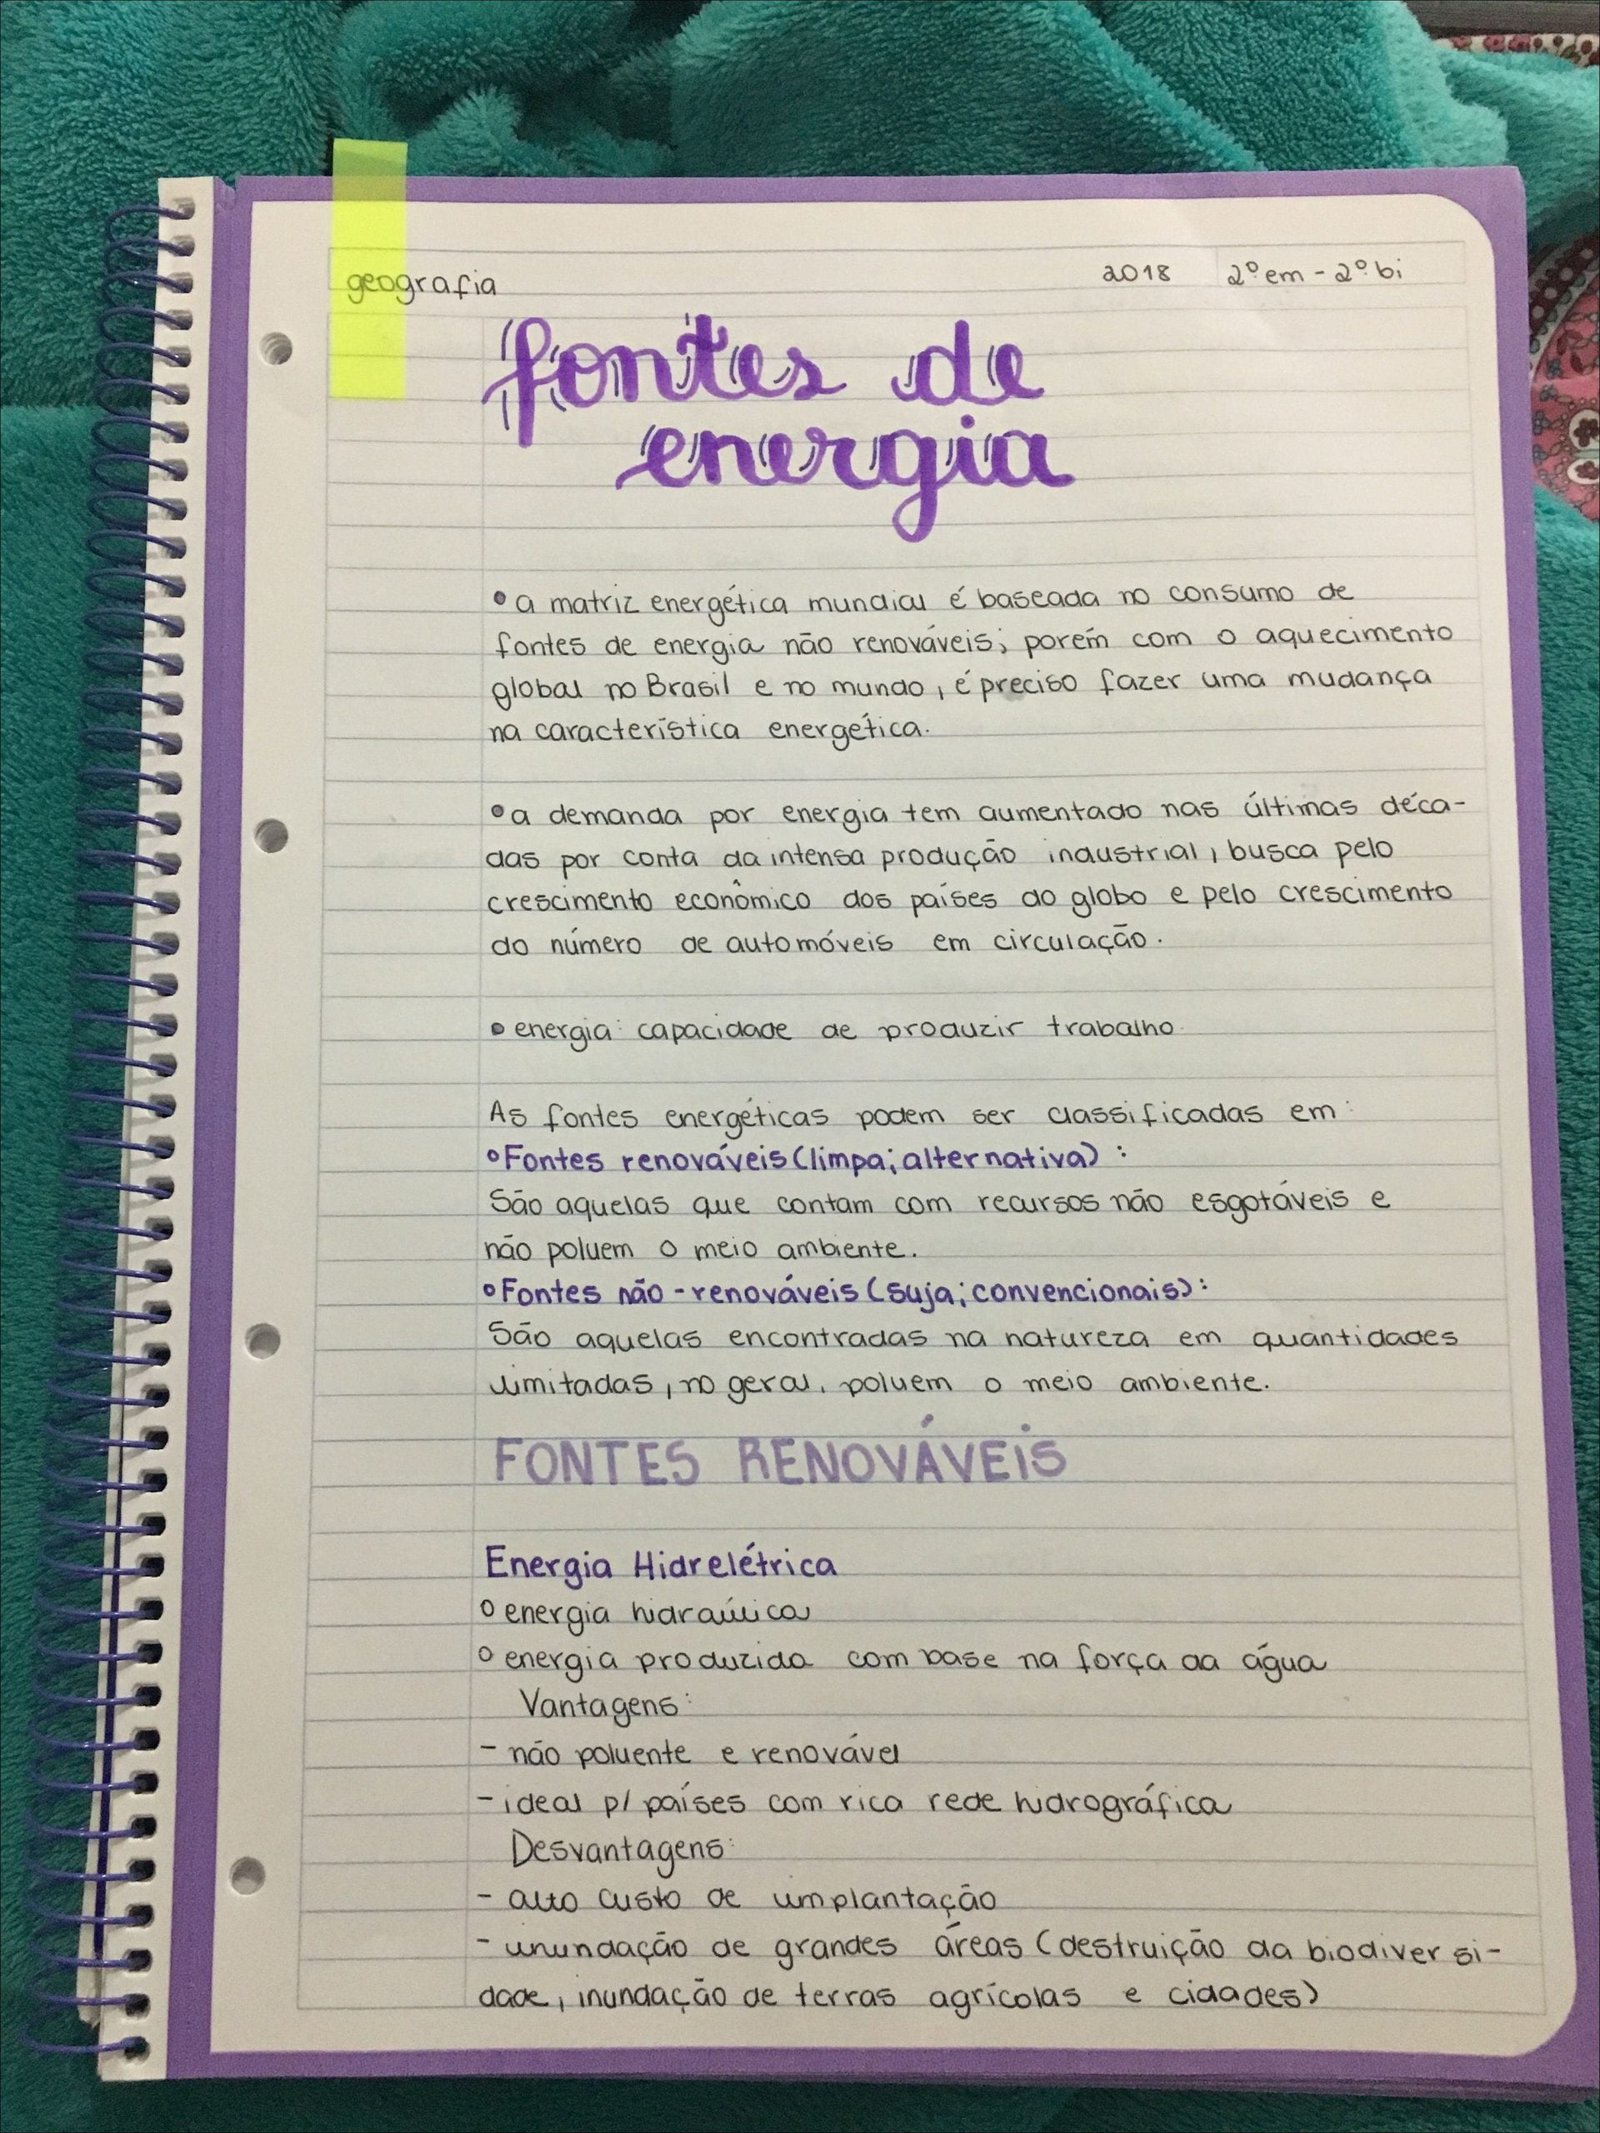 geografia
2018 2º em - 2º bi
fontes de
energia
• a matriz energética mundial é baseada no consumo de
fontes de energia não renováveis; porém com o aquecimento
global no Brasil e no mundo, é preciso fazer uma mudança
na característica energética.
• a demanda por energia tem aumentado nas últimas déca-
das por conta da intensa produção industrial, busca pelo
crescimento econômico dos países do globo e pelo crescimento
do número de automóveis em circulação.
• energia: capacidade de produzir trabalho
As fontes energéticas podem ser classificadas em:
° Fontes renováveis (limpa; alternativa):
São aquelas que contam com recursos não esgotáveis e
não poluem o meio ambiente.
° Fontes não-renováveis (suja; convencionais):
São aquelas encontradas na natureza em quantidades
limitadas, no geral, poluem o meio ambiente.
FONTES RENOVÁVEIS
Energia Hidrelétrica
° energia hidraúlica
° energia produzida com base na força da água
Vantagens:
- não poluente e renovável
- ideal p/ países com rica rede hidrográfica
Desvantagens:
- alto custo de implantação
- inundação de grandes áreas (destruição da biodiversi-
dade, inundação de terras agrícolas e cidades)